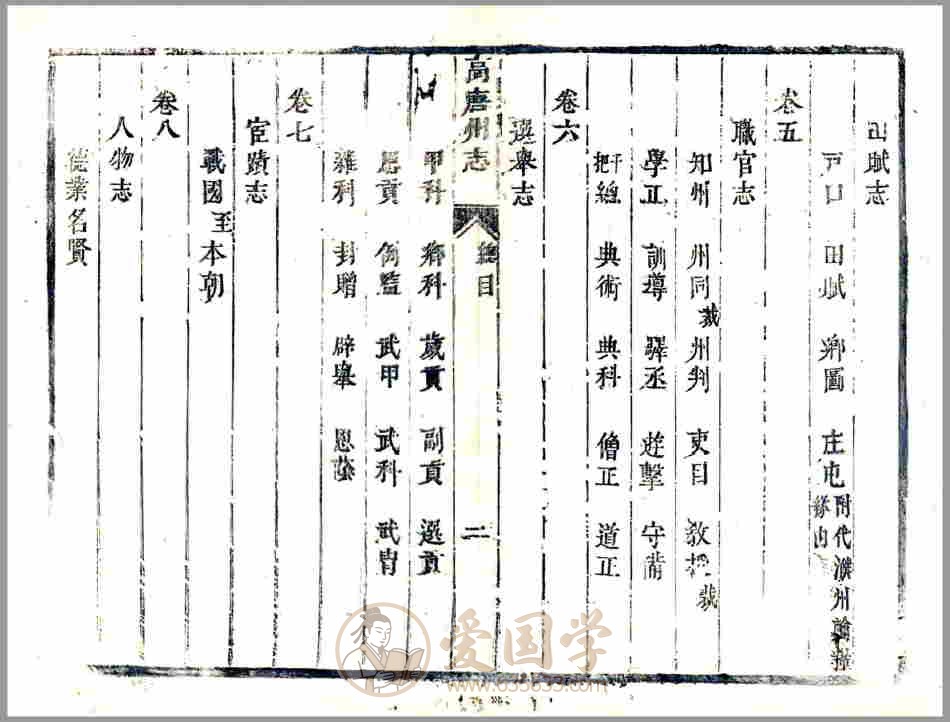 田賦志
戶口 田賦 鄉圖 庄屯 附代濮州 緣由
卷五
職官志
知州 州同裁 州判 吏目 教授裁
學正 訓導 驛丞 遊擊 守備
千把總 典術 典科 僧正 道正
卷六
選舉志
高唐州志 總目 二
甲科 鄉科 歲貢 副貢 選貢
恩貢 例監 武甲 武科 武冑
雜科 封贈 辟舉 恩蔭
卷七
宦蹟志
戰國至本朝
卷八
人物志
德業名賢
爱国学
www.655655.com